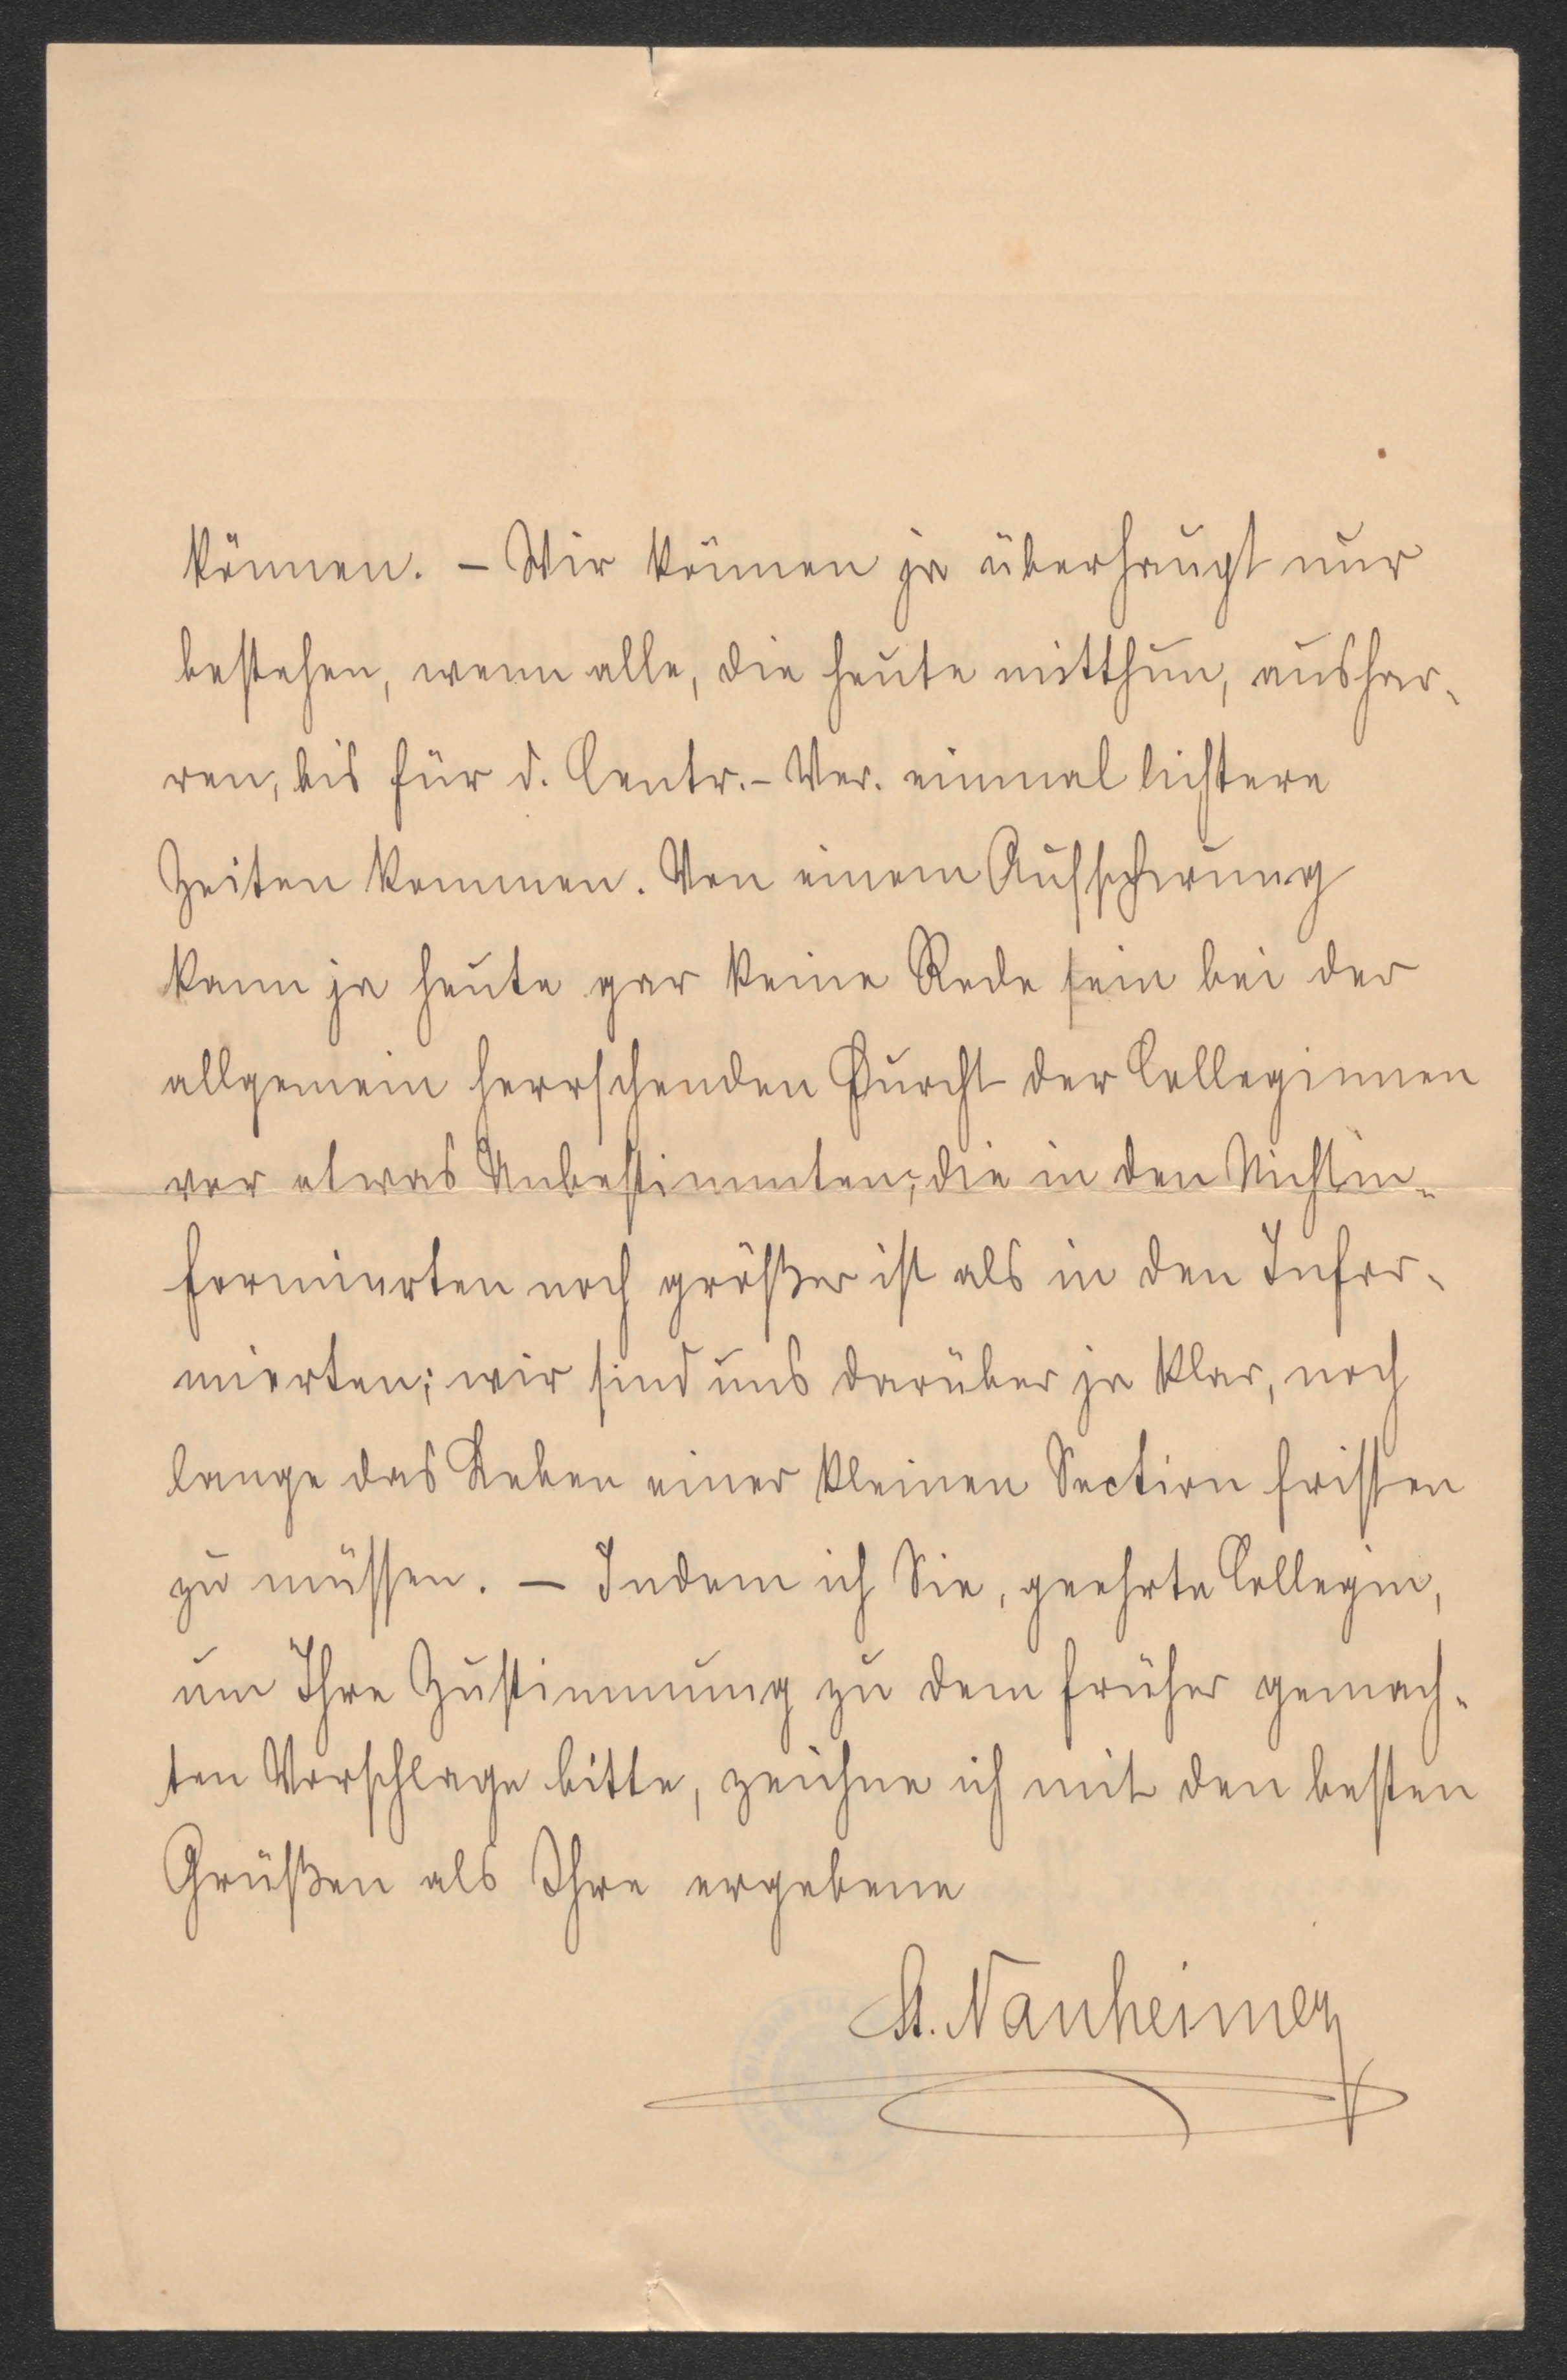 können. – Wir können ja überhaupt nur
bestehen, wenn alle, die heute mitthun, aushar-
ren, bis für d. Centr.-Ver. einmal lichtere
Zeiten kommen. Von einem Aufschwung
kann ja heute gar keine Rede sein bei der
allgemein herrschenden Furcht der Colleginnen
vor etwas Unbestimmten, die in den Nichtin-
formierten noch größer ist als in den Infor-
mierten; wir sind uns darüber ja klar, noch
lange das Leben einer kleinen Section fristen
zu müssen. – Indem ich Sie, geehrte Collegin,
um Ihre Zustimmung zu dem früher gemach-
ten Vorschlage bitte, zeichne ich mit den besten
Grüßen als Ihre ergebene
Nauheimer